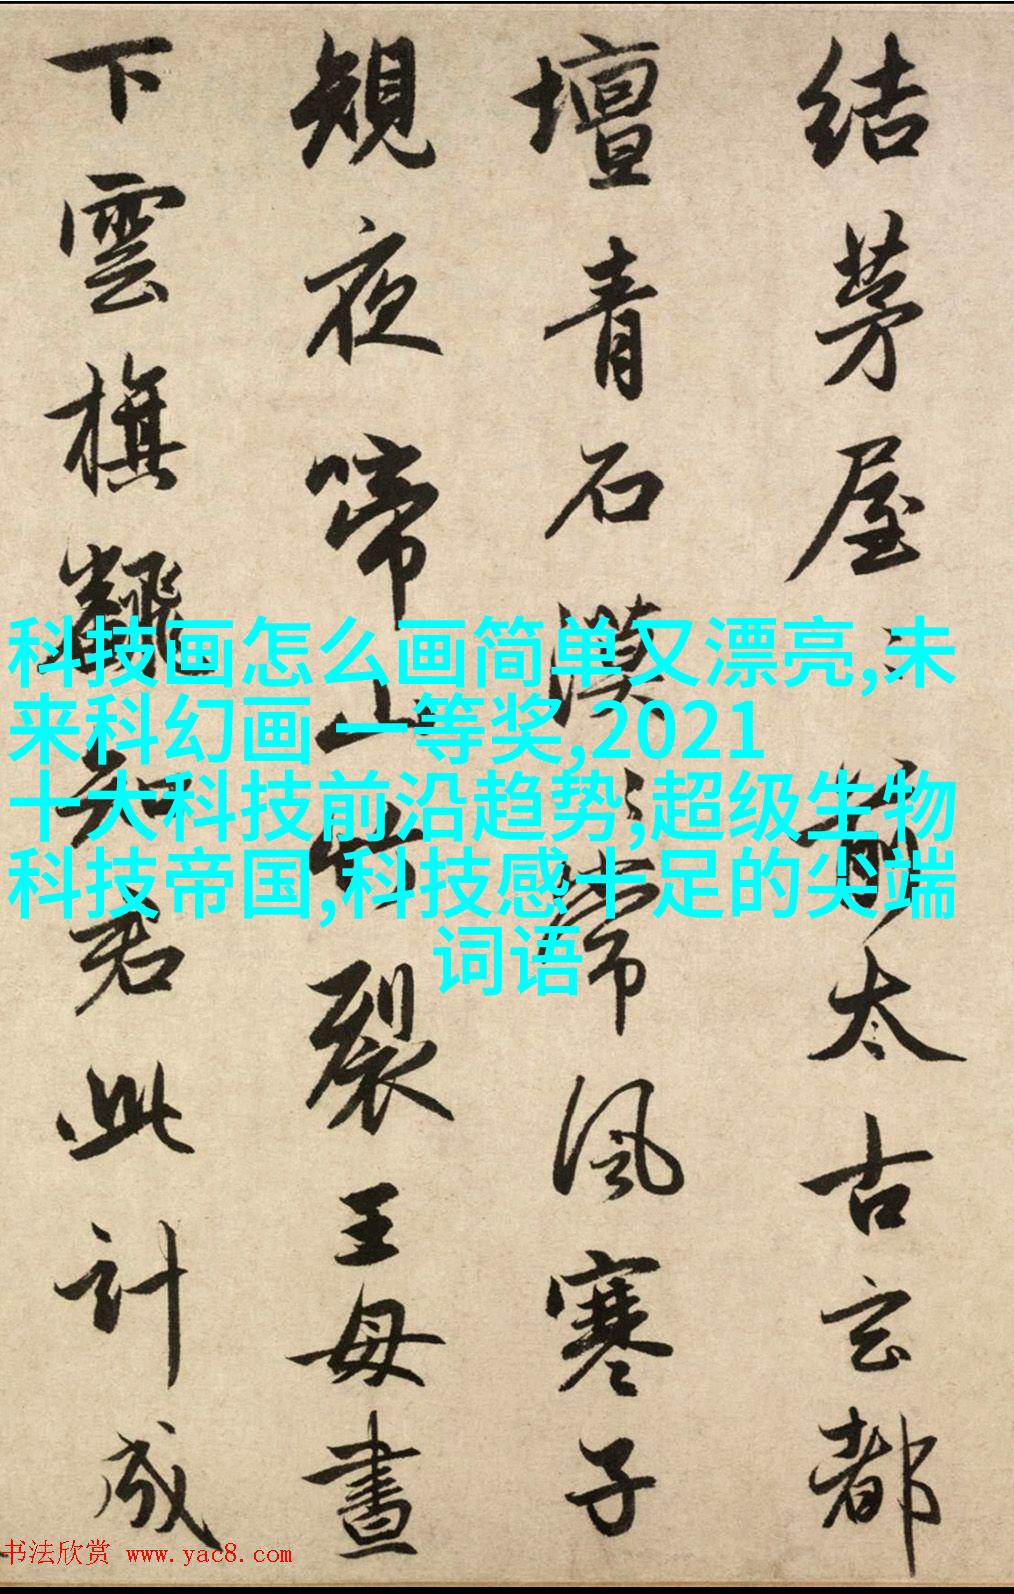 結茅屋〻前太古玄都
壇青石漠〻常風寒子
規夜啼山竹裂王母晝
下雲旗飜知君此計成
科技画怎么画简单又漂亮,未
来科幻画 一等奖,2021
十大科技前沿趋势,超级生物
科技帝国,科技感十足的尖端
词语
书法欣赏 www.yac8.com